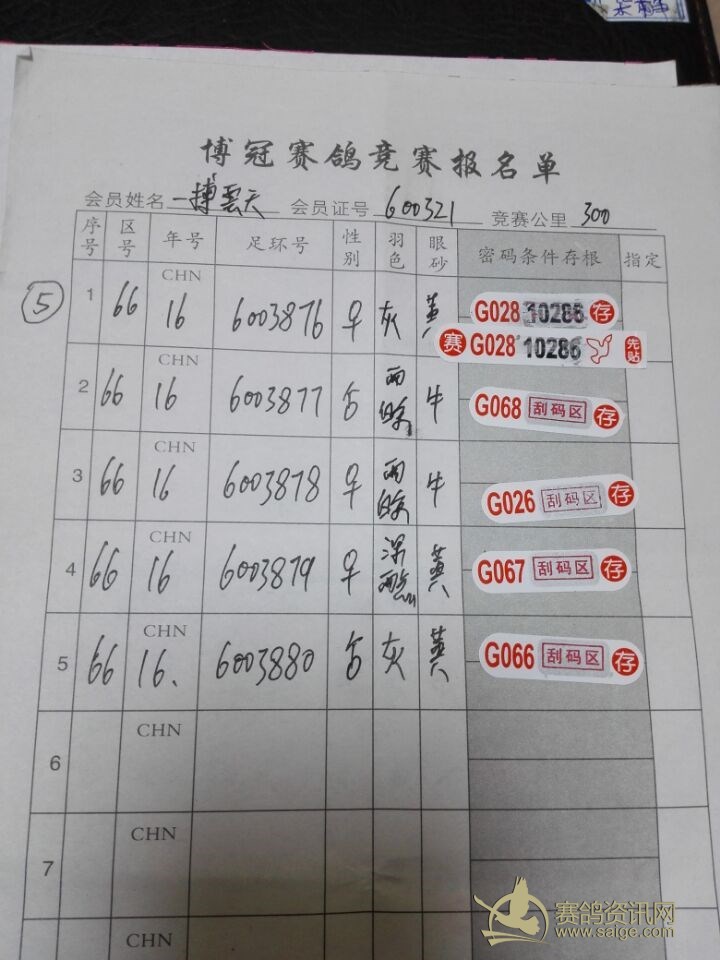 博冠赛鸽竞赛报名单
会员姓名 一搏雲天 会员证号 600321 竞赛公里 300
序号 区号 年号 足环号 性别 羽色 眼砂 密码条件存根 指定
⑤
1 66 CHN 16 6003876 灰 黄 G028 10286 存
赛 G028 10286 先贴
2 66 CHN 16 6003877 雨 牛 G068 刮码区 存
3 66 CHN 16 6003878 雨 牛 G026 刮码区 存
4 66 CHN 16 6003879 深雨 黄 G067 刮码区 存
5 66 CHN 16、 6003880 灰 黄 G066 刮码区 存
6 CHN
7 CHN
CHN
赛鸽资讯网
www.saige.com